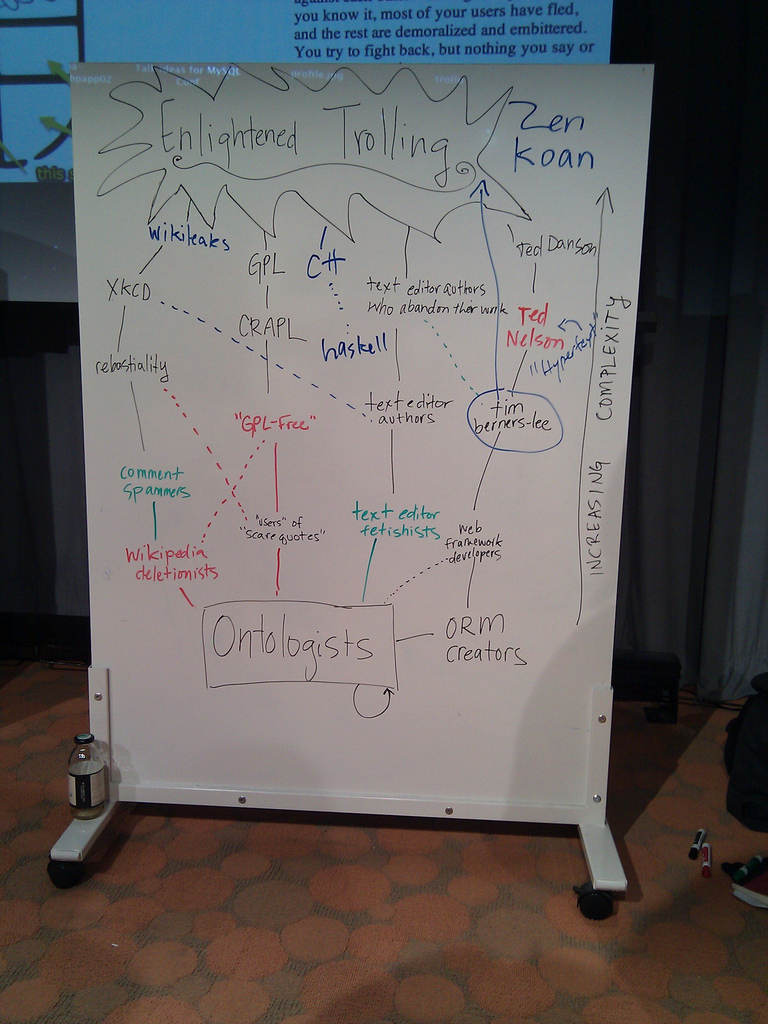 you know it, most of your users have fled,
and the rest are demoralized and embittered.
You try to fight back, but nothing you say or
Enlightened Trolling
Zen
Koan
wikileaks
GPL
C#
Ted Danson
XKCD
text editor authors
who abandon their work
CRAPL
haskell
Ted
Nelson
"Hypertext"
rebastiality
text editor
authors
tim
berners-lee
"GPL-Free"
comment
spammers
"users" of
"scare quotes"
text editor
fetishists
web
framework
developers
wikipedia
deletionists
Ontologists
ORM
creators
INCREASING COMPLEXITY